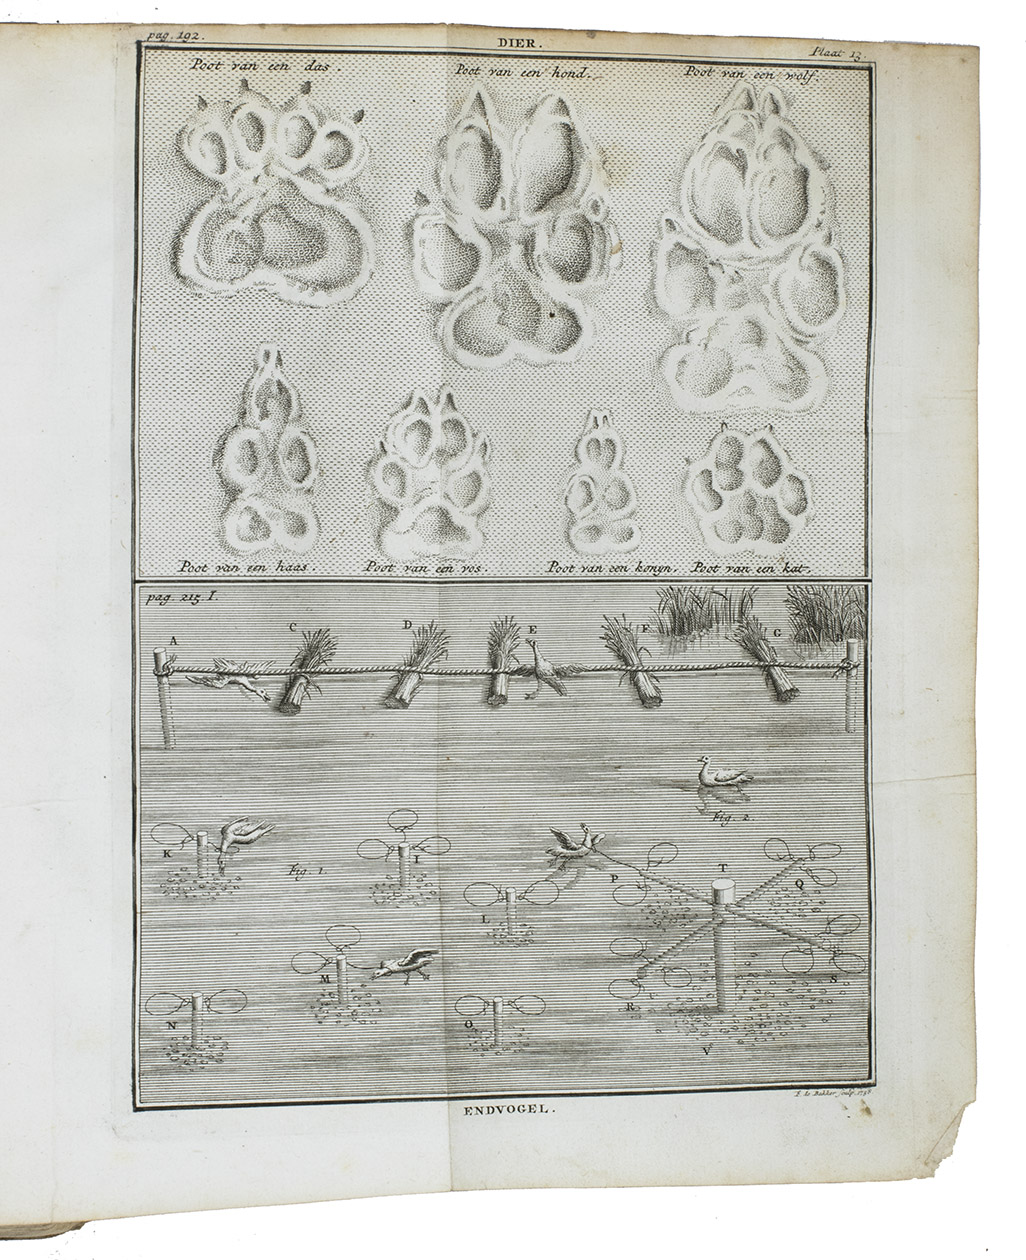 pag. 192.
DIER.
Plaat 13
Poot van een das
Poot van een hond.
Poot van een wolf.
Poot van een haas.
Poot van een vos.
Poot van een konyn.
Poot van een kat.
pag. 215. I.
A
C
D
E
F
G
B
Fig. 2.
K
Fig. 1.
I
L
P
T
Q
M
N
O
R
S
V
de Bakker sculp.
ENDVOGEL.